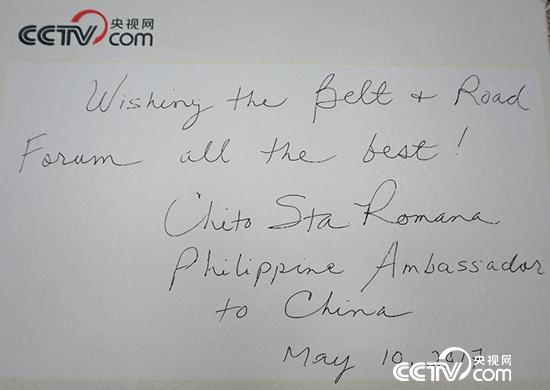 CCTV.com 央视网
Wishing the Belt & Road
Forum all the best!
Chito Sta Romana
Philippine Ambassador
to China
May 10, 2017
CCTV.com 央视网